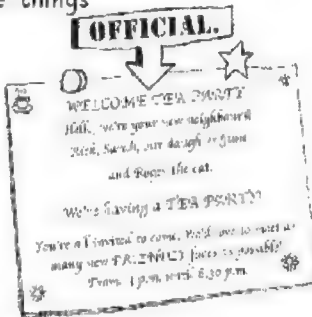 things
OFFICIAL.
WELCOME TEA PARTY
we're your new neighbours
Rick, Sarah, our daughter June
and Roger the cat.
We're having a TEA PARTY!
You're all invited to come, We'd love to meet as
many new FRIENDLY faces as possible
From 4 p.m. until 6.30 p.m.